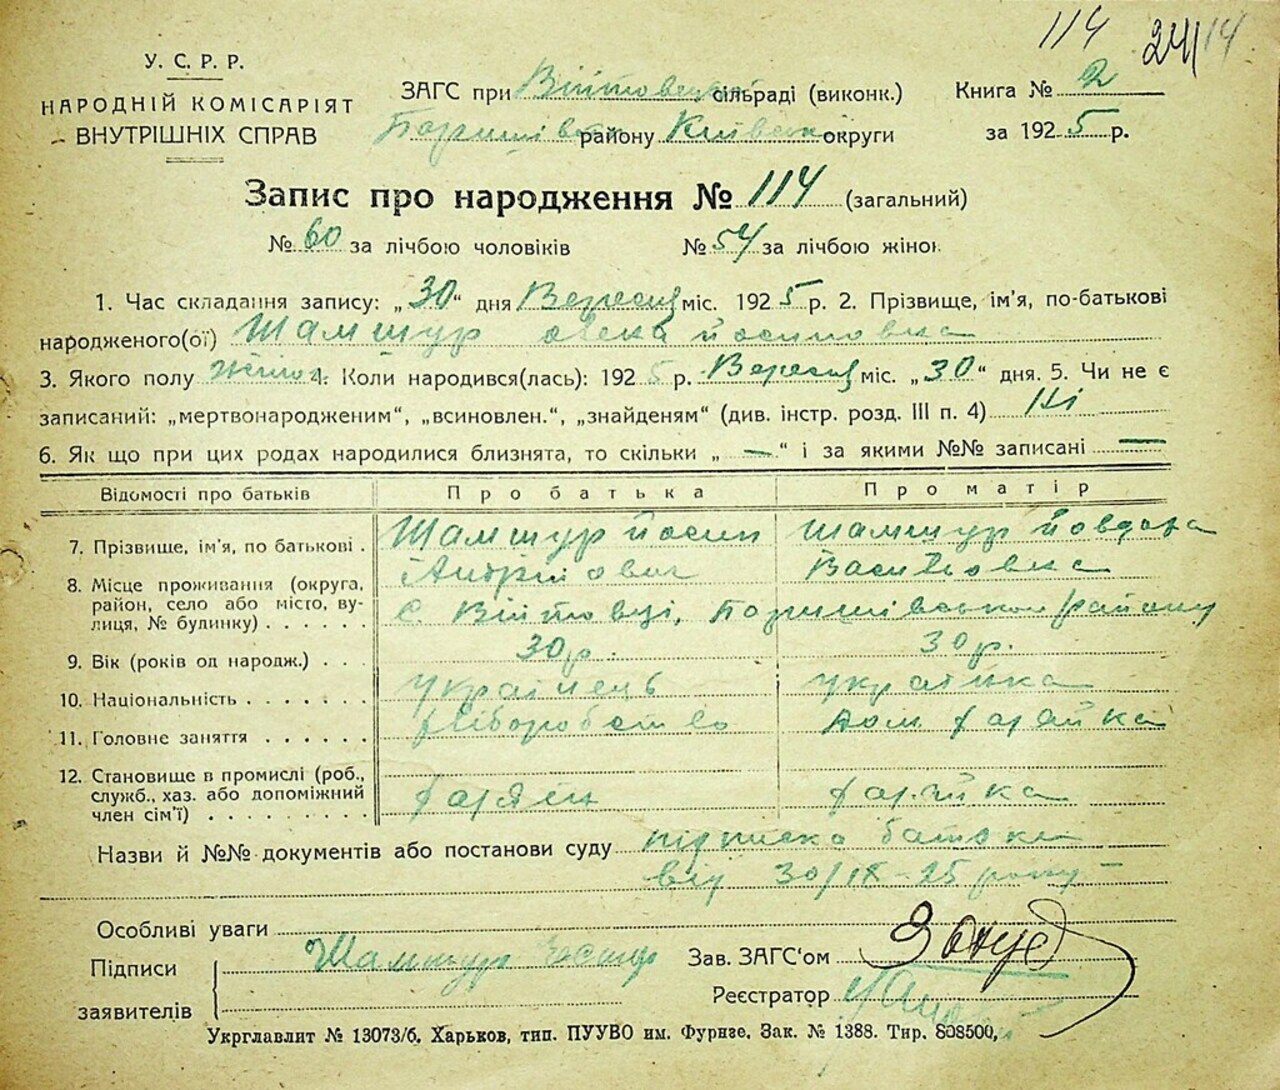 114 24 114
У. С. Р. Р.
НАРОДНІЙ КОМІСАРІЯТ
ВНУТРІШНІХ СПРАВ
ЗАГС при Війтовецк сільраді (виконк.)
Баришівськ району Київськ округи
Книга № 2
за 1925 р.
Запис про народження № 114 (загальний)
№ 60 за лічбою чоловіків № 54 за лічбою жінок
1. Час складання запису: „30“ дня Вересня міс. 1925 р. 2. Прізвище, ім’я, по-батькові
народженого(ої) Шамшур Йосиповна
3. Якого полу Жіноч 4. Коли народився(лась): 1925 р. Вересня міс. „30“ дня. 5. Чи не є
записаний: „мертвонародженим“, „всиновлен.“, „знайденям“ (див. інстр. розд. III п. 4) Ні
6. Як що при цих родах народилися близнята, то скільки „—“ і за якими №№ записані —
Відомості про батьків Про батька Про матір
7. Прізвище, ім’я, по батькові . Шамшур Йосип Шамшур Йовдоха
Андрійович Василовна
8. Місце проживання (округа,
район, село або місто, ву-
лиця, № будинку) . . . . . . с. Війтовці, Баришівського району
9. Вік (років од народж.) . . . 30 р. 30 р.
10. Національність . . . . . . . Українець українка
11. Головне заняття . . . . . . Хліборобство Дом. хазяйка
12. Становище в промислі (роб.,
служб., хаз. або допоміжний
член сім’ї) . . . . . . . . . хазяїн хазяйка
Назви й №№ документів або постанови суду підписка батька
від 30/IX-25 року
Особливі уваги
Підписи
заявителів Шамшур
Зав. ЗАГС‘ом
Реєстратор
Укрглавлит № 13073/б. Харьков, тип. ПУУВО им. Фурнзе. Зак. № 1388. Тир. 808500,